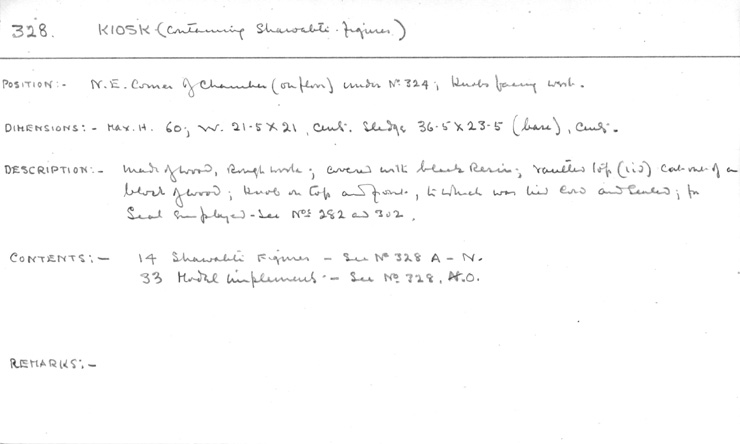 328. KIOSK (Containing Shawabti-figures)
POSITION:- N.E. Corner of Chamber (on floor) under No 324; Knobs facing west.
DIMENSIONS:- Max. H. 60; W. 21.5 X 21, cms. Sledge 36.5 X 23.5 (base), cms.
DESCRIPTION:- Made of wood, rough work; covered with black Resin; vaulted top (lid) cut out of a
block of wood; Knob on top and front, to which was tied cord and sealed; for
Seal employed - see Nos 282 and 302.
CONTENTS:- 14 Shawabti Figures - See No 328 A - N.
33 Model implements - See No 328, O.
REMARKS:-